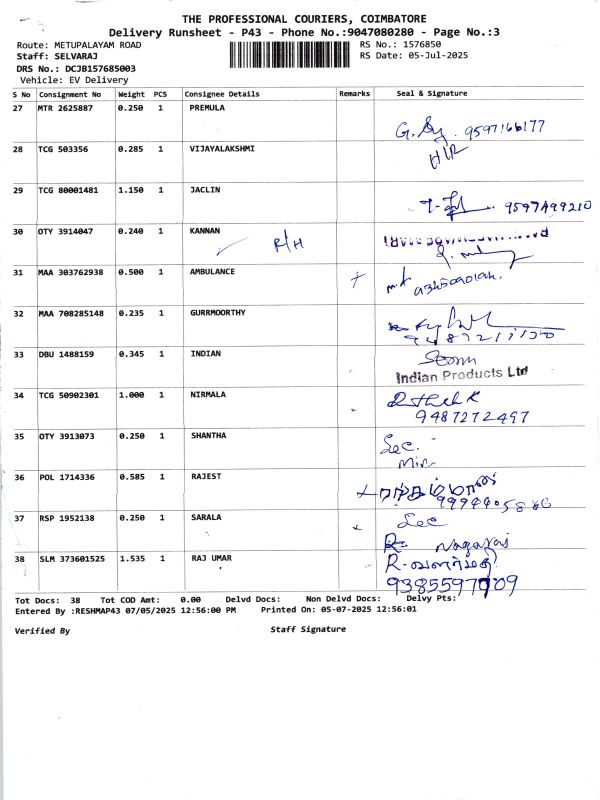 THE PROFESSIONAL COURIERS, COIMBATORE
Delivery Runsheet - P43 - Phone No.:9047080280 - Page No.:3
Route: METUPALAYAM ROAD
RS No.: 1576850
Staff: SELVARAJ
RS Date: 05-Jul-2025
DRS No.: DCJB157685003
Vehicle: EV Delivery
S No Consignment No Weight PCS Consignee Details Remarks Seal & Signature
27 MTR 2625887 0.250 1 PREMULA
9597166177
28 TCG 503356 0.285 1 VIJAYALAKSHMI
H/R
29 TCG 80001481 1.150 1 JACLIN
9597499210
30 OTY 3914047 0.240 1 KANNAN
R/H
31 MAA 303762938 0.500 1 AMBULANCE
32 MAA 708285148 0.235 1 GURRMOORTHY
33 DBU 1488159 0.345 1 INDIAN
Indian Products Ltd
34 TCG 50902301 1.000 1 NIRMALA
9487272497
35 OTY 3913073 0.250 1 SHANTHA
Sec.
36 POL 1714336 0.585 1 RAJEST
37 RSP 1952138 0.250 1 SARALA
Sec
R- Nagaraj
38 SLM 373601525 1.535 1 RAJ UMAR
R. வளர்மதி
9385597909
Tot Docs: 38 Tot COD Amt: 0.00 Delvd Docs: Non Delvd Docs: Delvy Pts:
Entered By :RESHMAP43 07/05/2025 12:56:00 PM Printed On: 05-07-2025 12:56:01
Verified By Staff Signature